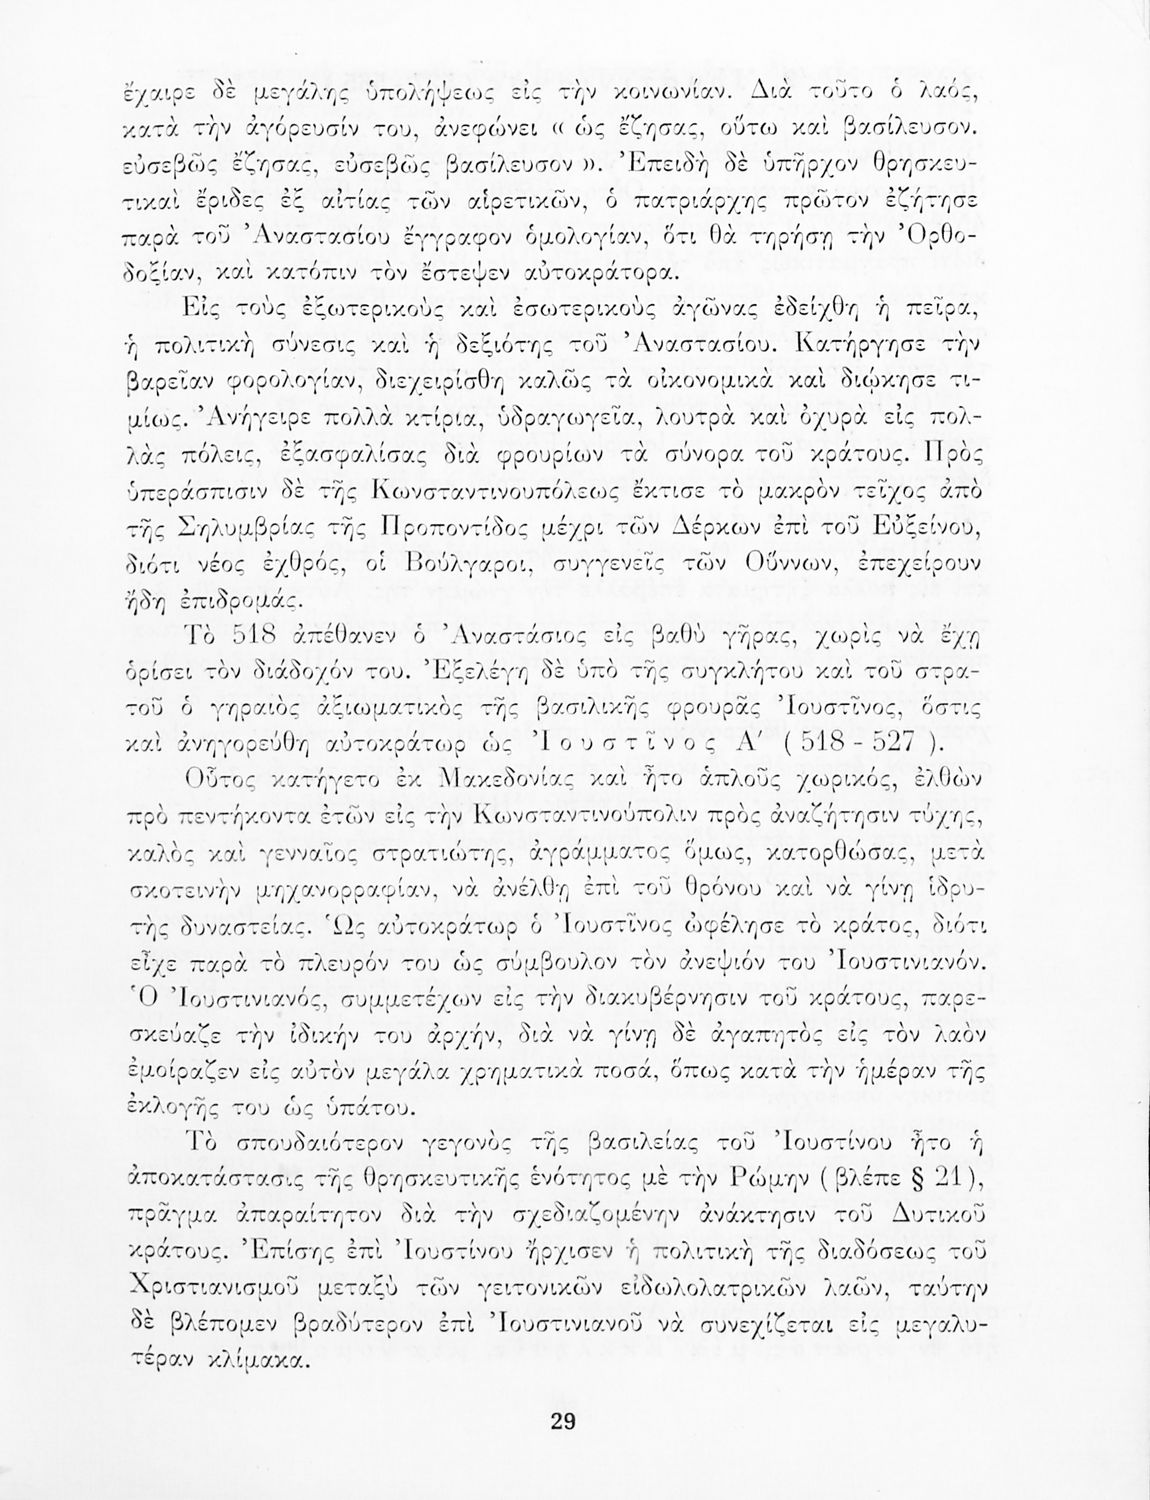 ἔχαιρε δὲ μεγάλης ὑπολήψεως εἰς τὴν κοινωνίαν. Διὰ τοῦτο ὁ λαός,
κατὰ τὴν ἀγόρευσίν του, ἀνεφώνει « ὡς ἔζησας, οὕτω καὶ βασίλευσον.
εὐσεβῶς ἔζησας, εὐσεβῶς βασίλευσον ». Ἐπειδὴ δὲ ὑπῆρχον θρησκευ-
τικαὶ ἔριδες ἐξ αἰτίας τῶν αἱρετικῶν, ὁ πατριάρχης πρῶτον ἐζήτησε
παρὰ τοῦ Ἀναστασίου ἔγγραφον ὁμολογίαν, ὅτι θὰ τηρήσῃ τὴν Ὀρθο-
δοξίαν, καὶ κατόπιν τὸν ἔστεψεν αὐτοκράτορα.
Εἰς τοὺς ἐξωτερικοὺς καὶ ἐσωτερικοὺς ἀγῶνας ἐδείχθη ἡ πεῖρα,
ἡ πολιτικὴ σύνεσις καὶ ἡ δεξιότης τοῦ Ἀναστασίου. Κατήργησε τὴν
βαρεῖαν φορολογίαν, διεχειρίσθη καλῶς τὰ οἰκονομικὰ καὶ διῴκησε τι-
μίως. Ἀνήγειρε πολλὰ κτίρια, ὑδραγωγεῖα, λουτρὰ καὶ ὀχυρὰ εἰς πολ-
λὰς πόλεις, ἐξασφαλίσας διὰ φρουρίων τὰ σύνορα τοῦ κράτους. Πρὸς
ὑπεράσπισιν δὲ τῆς Κωνσταντινουπόλεως ἔκτισε τὸ μακρὸν τεῖχος ἀπὸ
τῆς Σηλυμβρίας τῆς Προποντίδος μέχρι τῶν Δέρκων ἐπὶ τοῦ Εὐξείνου,
διότι νέος ἐχθρός, οἱ Βούλγαροι, συγγενεῖς τῶν Οὕννων, ἐπεχείρουν
ἤδη ἐπιδρομάς.
Τὸ 518 ἀπέθανεν ὁ Ἀναστάσιος εἰς βαθὺ γῆρας, χωρὶς νὰ ἔχῃ
ὁρίσει τὸν διάδοχόν του. Ἐξελέγη δὲ ὑπὸ τῆς συγκλήτου καὶ τοῦ στρα-
τοῦ ὁ γηραιὸς ἀξιωματικὸς τῆς βασιλικῆς φρουρᾶς Ἰουστῖνος, ὅστις
καὶ ἀνηγορεύθη αὐτοκράτωρ ὡς Ἰουστῖνος Α΄ ( 518 - 527 ).
Οὗτος κατήγετο ἐκ Μακεδονίας καὶ ἦτο ἁπλοῦς χωρικός, ἐλθὼν
πρὸ πεντήκοντα ἐτῶν εἰς τὴν Κωνσταντινούπολιν πρὸς ἀναζήτησιν τύχης,
καλὸς καὶ γενναῖος στρατιώτης, ἀγράμματος ὅμως, κατορθώσας, μετὰ
σκοτεινὴν μηχανορραφίαν, νὰ ἀνέλθῃ ἐπὶ τοῦ θρόνου καὶ νὰ γίνῃ ἱδρυ-
τὴς δυναστείας. Ὡς αὐτοκράτωρ ὁ Ἰουστῖνος ὠφέλησε τὸ κράτος, διότι
εἶχε παρὰ τὸ πλευρόν του ὡς σύμβουλον τὸν ἀνεψιόν του Ἰουστινιανόν.
Ὁ Ἰουστινιανός, συμμετέχων εἰς τὴν διακυβέρνησιν τοῦ κράτους, παρε-
σκεύαζε τὴν ἰδικήν του ἀρχήν, διὰ νὰ γίνῃ δὲ ἀγαπητὸς εἰς τὸν λαὸν
ἐμοίραζεν εἰς αὐτὸν μεγάλα χρηματικὰ ποσά, ὅπως κατὰ τὴν ἡμέραν τῆς
ἐκλογῆς του ὡς ὑπάτου.
Τὸ σπουδαιότερον γεγονὸς τῆς βασιλείας τοῦ Ἰουστίνου ἦτο ἡ
ἀποκατάστασις τῆς θρησκευτικῆς ἑνότητος μὲ τὴν Ρώμην ( βλέπε § 21),
πρᾶγμα ἀπαραίτητον διὰ τὴν σχεδιαζομένην ἀνάκτησιν τοῦ Δυτικοῦ
κράτους. Ἐπίσης ἐπὶ Ἰουστίνου ἤρχισεν ἡ πολιτικὴ τῆς διαδόσεως τοῦ
Χριστιανισμοῦ μεταξὺ τῶν γειτονικῶν εἰδωλολατρικῶν λαῶν, ταύτην
δὲ βλέπομεν βραδύτερον ἐπὶ Ἰουστινιανοῦ νὰ συνεχίζεται εἰς μεγαλυ-
τέραν κλίμακα.
29